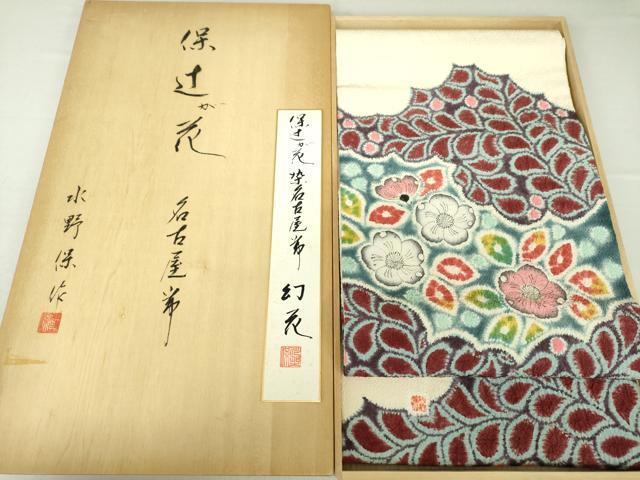 保辻が花
名古屋帯
水野保作
保辻が花染名古屋帯 幻花